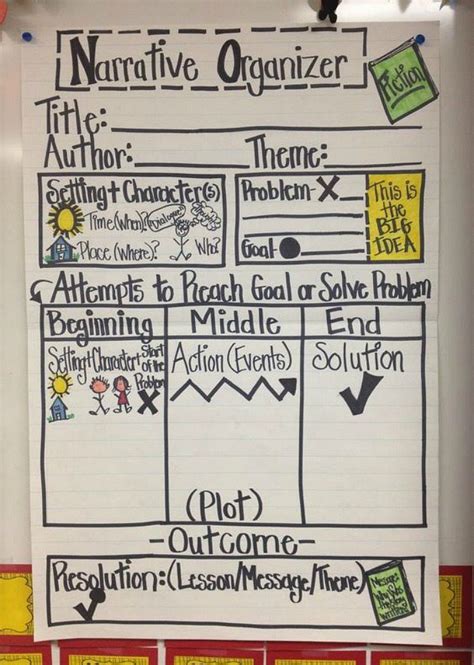 Narrative Organizer
Fiction
Title:
Author: Theme:
Setting + Character(s)
Time (When)?
Dialogue
Place (Where)? Who?
Problem - X
Goal
This is
the
BIG
IDEA
Attempts to Reach Goal or Solve Problem
Beginning Middle End
Setting + Character + Start
of the
Problem
X
Action (Events)
Solution
(Plot)
- Outcome -
Resolution: (Lesson/Message/Theme)
Message